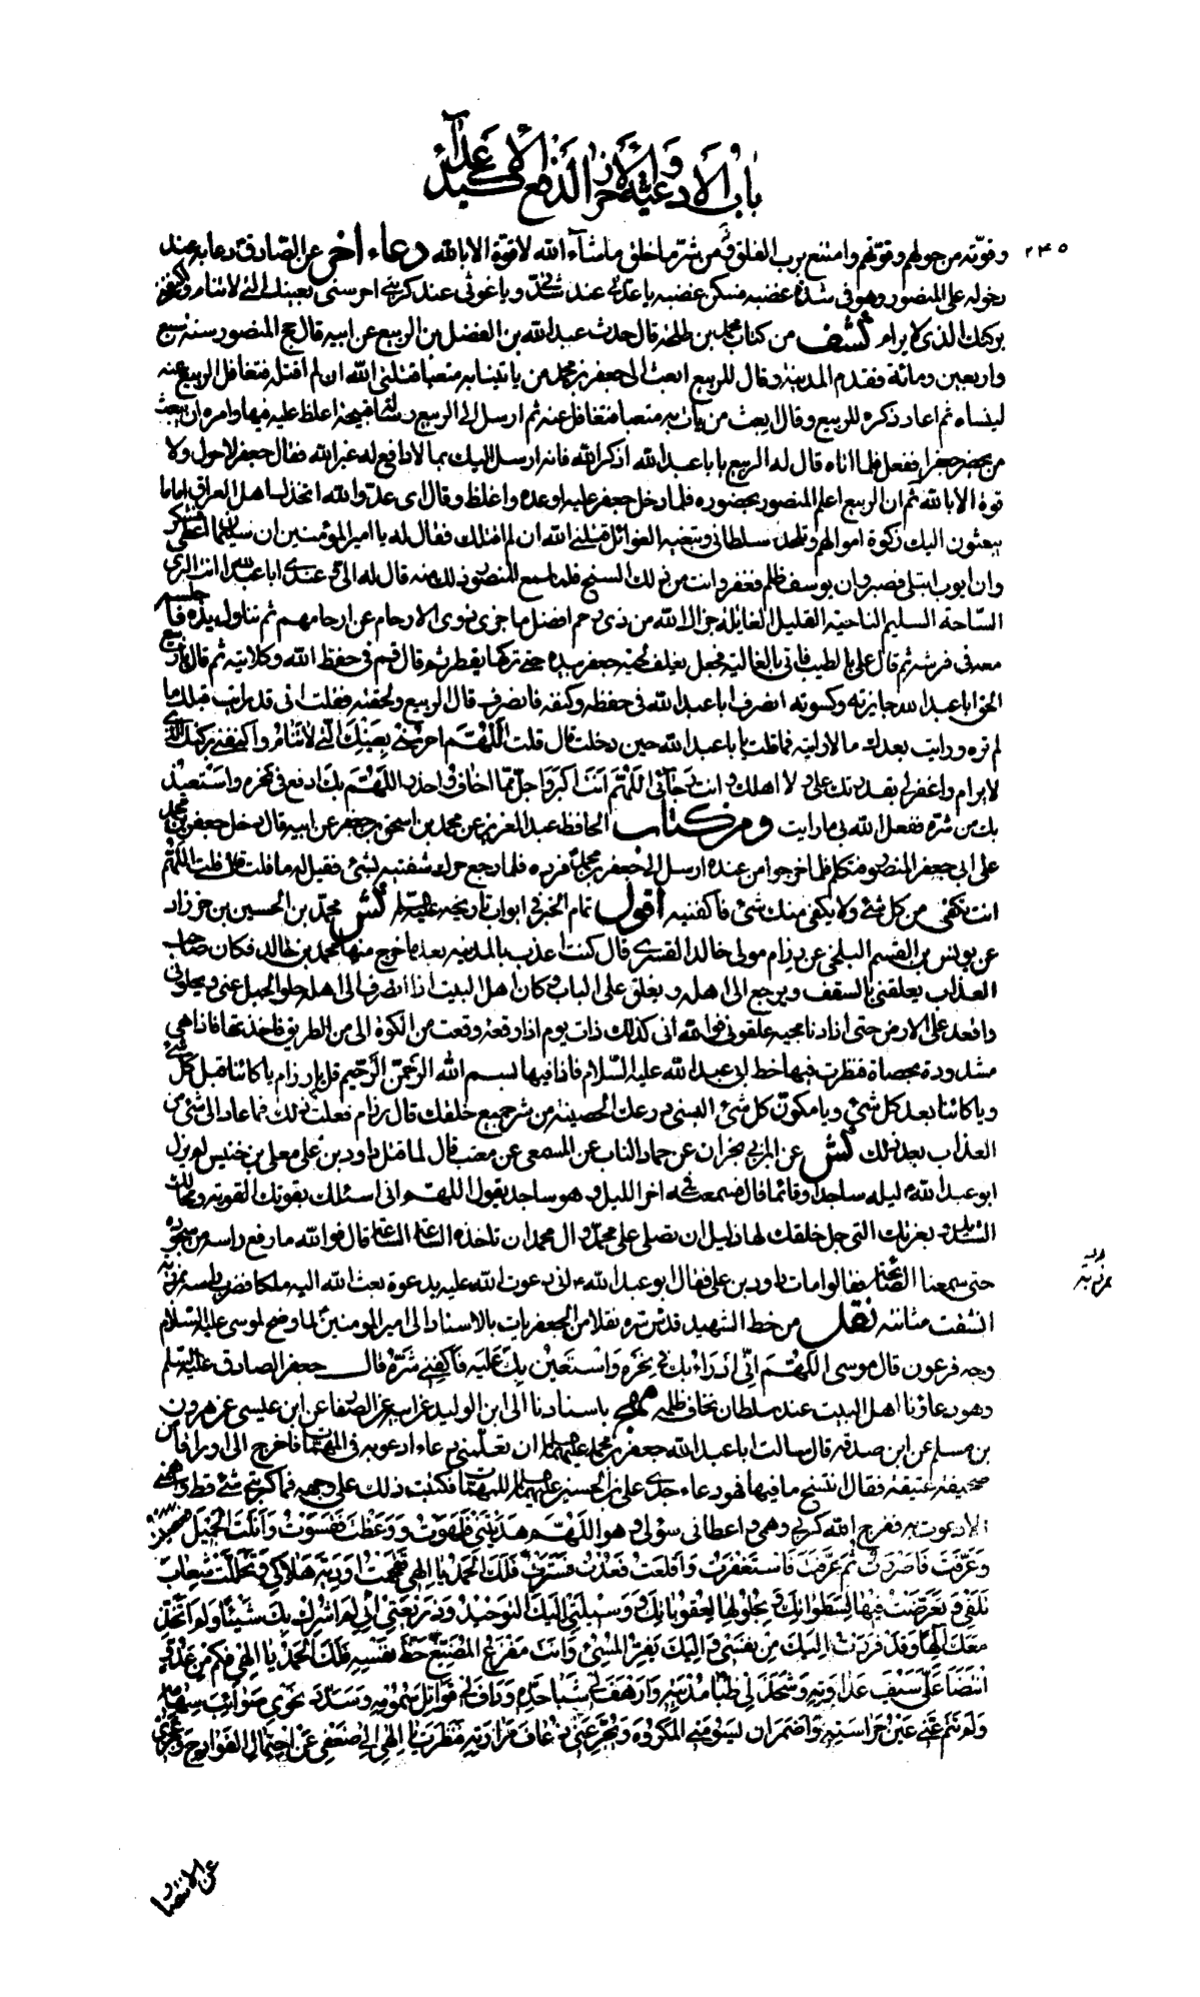 باب الادعية والاحراز لدفع كيد الاعداء
٢٤٥
وقوته من حولهم وقوتهم وامتنع برب الفلق من شر ما خلق ما شاء الله لا قوة الا بالله دعاء اخر عن الصادق دعا به عند
دخوله على المنصور وهو في شدة غضبه فسكن غضبه يا عدتي عند شدتي ويا غوثي عند كربتي احرسني بعينك التي لا تنام واكنفني
بركنك الذي لا يرام كشف من كتاب محمد بن طلحة قال حدث عبدالله بن الفضل بن الربيع عن ابيه قال حج المنصور سنة سبع
واربعين ومائة فقدم المدينة وقال للربيع ابعث الى جعفر بن محمد من ياتينا به متعبا قتلني الله ان لم اقتله فتغافل الربيع عنه
لينساه ثم اعاد ذكره للربيع وقال ابعث من ياتي به متعبا فتغافل عنه ثم ارسل الى الربيع رسالة قبيحة اغلظ عليه فيها وامره ان يبعث
من يحضر جعفرا ففعل فلما اتاه قال له الربيع يا با عبد الله اذكر الله فانه ارسل اليك بما لا دافع له غير الله فقال جعفر لا حول ولا
قوة الا بالله ثم ان الربيع اعلم المنصور بحضوره فلما دخل جعفر عليه اوعده واغلظ وقال اى عدو الله اتخذك اهل العراق اماما
يبعثون اليك زكوة اموالهم وتلحد سلطاني وتبتغيه الغوائل قتلني الله ان لم اقتلك فقال له يا امير المؤمنين ان سليمان اعطى فشكر
وان ايوب ابتلى فصبر وان يوسف ظلم فغفر وانت من ذلك السنخ فلما سمع المنصور ذلك منه قال له الى وعندي ابا عبدالله انت البرئ
الساحة السليم الناحية القليل الغايلة جزاك الله من ذي رحم افضل ما جزى ذوى الارحام عن ارحامهم ثم تناول يده فاجلسه
معه في فرشه ثم قال علي بالطيب فاتى بالغالية فجعل يغلف لحية جعفر بيده حتى تركها يقطر ثم قال قم في حفظ الله وكلائته ثم قال يا ربيع
الحق ابا عبد الله جايزته وكسوته انصرف ابا عبد الله في حفظه وكنفه فانصرف قال الربيع ولحقته فقلت انى قد رايت قبلك ما
لم تره ورايت بعدك ما لا رايته فما قلت يا با عبد الله حين دخلت قال قلت اللهم احرسني بعينك التي لا تنام واكنفني بركنك الذي
لا يرام واغفر لي بقدرتك على ولا اهلك وانت رجائي اللهم انت اكبر واجل مما اخاف واحذر اللهم بك ادفع في نحره واستعيذ
بك من شره ففعل الله بي ما رايت ومن كتاب الحافظ عبد العزيز عن محمد بن اسحق بن جعفر عن ابيه قال دخل جعفر بن محمد
على ابى جعفر المنصور فتكلم فلما خرجوا من عنده ارسل الى جعفر بن محمد فرده فلما رجع حرك شفتيه بشئ فقيل له ما قلت قال قلت اللهم
انت تكفى من كل شئ ولا يكفى منك شئ فاكفنيه اقول تمام الخبر في ابواب تاريخه عليه السلم كش محمد بن الحسين بن خرزاد
عن يونس بن القسم البلخي عن رزام مولى خالد القسري قال كنت اعذب بالمدينه بعد ما خرج منها محمد بن خالد فكان صاحب
العذاب يعلقني بالسقف ويرجع الى اهله ويغلق على الباب وكان اهل البيت اذا انصرف الى اهله حلوا الحبل عنى ويخلوني
واقعد على الارض حتى اذا دنا مجيه علقوني فوالله انى كذلك ذات يوم اذا رقعة وقعت من الكوة الى من الطريق فاخذتها فاذا هي
مشدودة بحصاة فنظرت فيها خط ابى عبد الله عليه السلام فاذا فيها بسم الله الرحمن الرحيم قل يا رزام يا كائنا قبل كل شئ
ويا كائنا بعد كل شئ ويا مكون كل شئ البسني درعك الحصينة من شر جميع خلقك قال رزام فقلت ذلك فما عاد الى شئ من
العذاب بعد ذلك كش عن حماد الناب عن المسمعى عن معتب قال لما قتل داود بن على معلى بن خنيس لم يزل
ابو عبد الله ليله ساجدا وقائما قال فسمعته في اخر الليل وهو ساجد يقول اللهم انى اسئلك بقوتك القوية ومحالك
الشديد وبعزتك التى جل خلقك لها ذليل ان تصلى على محمد وال محمد ان تاخذه الساعة الساعة قال فوالله ما رفع راسه من سجوده
حتى سمعنا الصائحة فقالوا مات داود بن على فقال ابو عبد الله انى دعوت الله عليه بدعوة بعث الله اليه ملكا فضرب راسه
انشقت مثانته نقل من خط الشهيد قدس سره نقلا من الجعفريات بالاسناد الى امير المومنين لما وضح لموسى عليه السلام
وجه فرعون قال موسى اللهم انى ادراء بك في نحره واستعين بك عليه فاكفني شره قال جعفر الصادق عليه السلم
وهو دعاؤنا اهل البيت عند سلطان نخاف ظلمه مهج باسنادنا الى ابن الوليد عن الصفار عن ابن عيسى عن هرون
بن مسلم عن ابن صدقة قال سالت ابا عبد الله جعفر بن محمد عليهما السلم ان تعلمني دعاء ادعو به في المهمات فاخرج الى اوراقا من
صحيفة عتيقة فقال انتسخ ما فيها فهو دعاء جدي علي بن الحسين عليه السلم للمهمات فكتبت ذلك على وجهه فما كربني شئ قط واهمني
الا دعوت به ففرج الله كربي وهمي واعطاني سؤلى وهو اللهم هديتني فلهوت ووعظت فقسوت وابليت الجميل فعصيت
وعرفت فاصررت ثم عرفت فاستغفرت واقلعت فعدت فسترت فلك الحمد يا الهي تقحمت اودية هلاكي وتحللت شعاب
تلفي وتعرضت فيها لسطواتك وبحلولها لعقوباتك ووسيلتي اليك التوحيد وذريعتي اني لم اشرك بك شيئا ولم اتخذ
معك الها وقد فررت اليك من نفسي واليك يفر المسئ وانت مفزع المضيع حظ نفسه فلك الحمد يا الهي فكم من عدو
انتضا على سيف عداوته وشحذ لي ظبا مديته وارهف لي شبا حده وداف لي قواتل سمومه وسدد نحوى صوائب سهامه
ولم تنم عني عين حراسته واضمر ان يسومني المكروه ويجرعني زعاف مرارته فنظرت يا الهي الى ضعفي عن احتمال الفوادح وعجزي
عن الانتصار